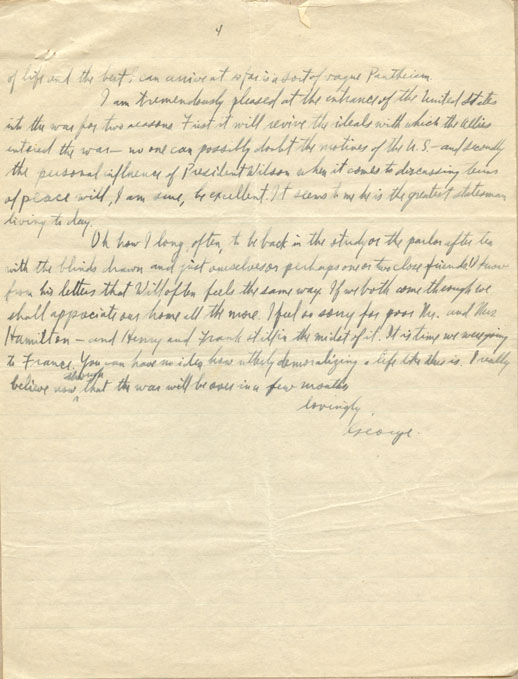 4
of life and the best I can arrive at so far is a sort of vague Pantheism.
I am tremendously pleased at the entrance of the United States
into the war for two reasons First it will revive the ideals with which the allies
entered the war — no one can possibly doubt the motives of the U.S — and secondly
the personal influence of President Wilson when it comes to discussing terms
of peace will, I am sure, be excellent. It seems to me he is the greatest statesman
living to day.
Oh how I long, often, to be back in the study or the parlor after tea
with the blinds drawn and just ourselves or perhaps one or two close friends I know
from his letters that Will often feels the same way. If we both come through we
shall appreciate our home all the more. I feel so sorry for poor Mr. and Mrs
Hamilton — and Henry and Frank still in the midst of it. It is time we were going
to France. You can have no idea how utterly demoralizing a life like this is. I really
believe now though that the war will be over in a few months
Lovingly,
George.